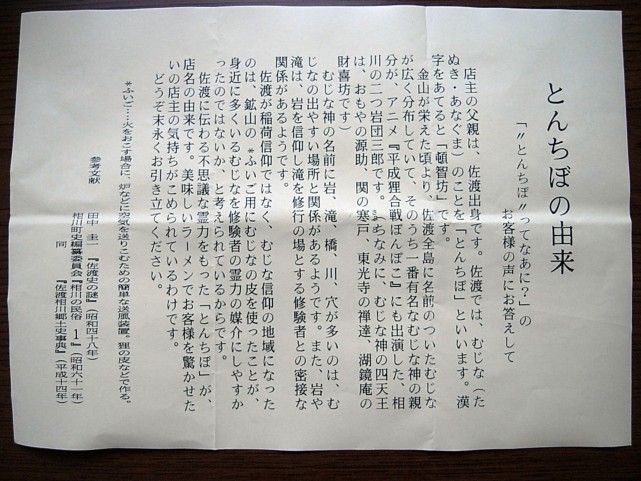 とんちぼの由来
「〝とんちぼ〟ってなあに？」の
お客様の声にお答えして
店主の父親は、佐渡出身です。佐渡では、むじな（た
ぬき・あなぐま）のことを「とんちぼ」といいます。漢
字をあてると「頓智坊」です。
金山が栄えた頃より、佐渡全島に名前のついたむじな
が広く分布していて、そのうち一番有名なむじな神の親
分が、アニメ『平成狸合戦ぽんぽこ』にも出演した、相
川の二つ岩団三郎です。（ちなみに、むじな神の四天王
は、おもやの源助、関の寒戸、東光寺の禅達、湖鏡庵の
財喜坊です）
むじな神の名前に岩、滝、橋、川、穴が多いのは、む
じなの出やすい場所と関係があるようです。また、岩や
滝は、岩を信仰し滝を修行の場とする修験者との密接な
関係があるようです。
佐渡が稲荷信仰ではなく、むじな信仰の地域になった
のは、鉱山の＊ふいご用にむじなの皮を使ったことが、
身近に多くいるむじなを修験者の霊力の媒介にしやすか
ったのではないか、と考えられているからです。
佐渡に伝わる不思議な霊力をもった「とんちぼ」が、
店名の由来です。美味しいラーメンでお客様を驚かせた
いの店主の気持ちがこめられているわけです。
どうぞ末永くお引き立てください。
＊ふいご…火をおこす場合に、炉などに空気を送りこむための簡単な送風装置、狸の皮などで作る。
参考文献
田中 圭一『佐渡史の謎』（昭和四十八年）
相川町史編纂委員会『相川の民俗 1』（昭和六十一年）
同 『佐渡相川郷土史事典』（平成十四年）